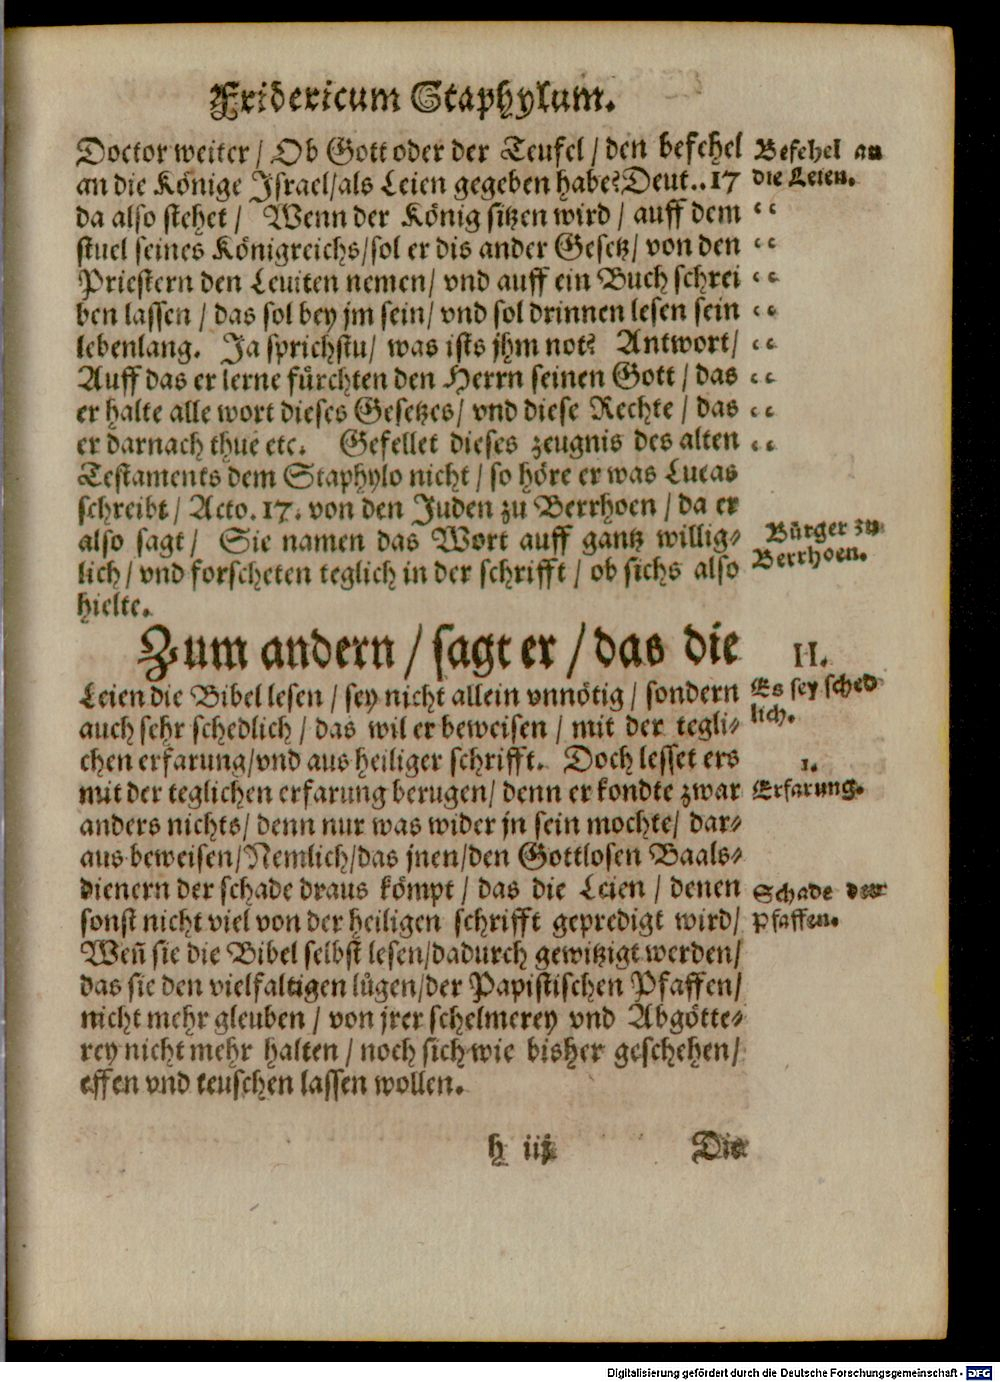 Fridericum Staphylum.
Doctor weiter / Ob Gott oder der Teufel / den befehel
an die Könige Jsrael/als Leien gegeben habe? Deut.. 17
da also stehet / Wenn der König sitzen wird / auff dem
stuel seines Königreichs/sol er dis ander Gesetz/ von den
Priestern den Leuiten nemen/ vnd auff ein Buch schrei
ben lassen / das sol bey jm sein/ vnd sol drinnen lesen sein
lebenlang. Ja sprichstu/ was ists jhm not? Antwort/
Auff das er lerne fürchten den Herrn seinen Gott / das
er halte alle wort dieses Gesetzes/ vnd diese Rechte / das
er darnach thue etc. Gefellet dieses zeugnis des alten
Testaments dem Staphylo nicht / so höre er was Lucas
schreibt / Acto. 17. von den Juden zu Berrhoen / da er
also sagt / Sie namen das Wort auff gantz willig⸗
lich / vnd forscheten teglich in der schrifft / ob sichs also
hielte.
Befehel an
die Leien.
“
“
“
“
“
“
“
“
Bürger zu
Berrhoen.
Zum andern / sagt er / das die
Leien die Bibel lesen / sey nicht allein vnnötig / sondern
auch sehr schedlich / das wil er beweisen / mit der tegli⸗
chen erfarung/vnd aus heiliger schrifft. Doch lesset ers
mit der teglichen erfarung berugen/ denn er kondte zwar
anders nichts/ denn nur was wider jn sein mochte/ dar⸗
aus beweisen/Nemlich/das jnen/den Gottlosen Baals⸗
dienern der schade draus kömpt / das die Leien / denen
sonst nicht viel von der heiligen schrifft gepredigt wird/
Weñ sie die Bibel selbst lesen/dadurch gewitzigt werden/
das sie den vielfaltigen lügen/der Papistischen Pfaffen/
nicht mehr gleuben / von jrer schelmerey vnd Abgötte⸗
rey nicht mehr halten / noch sich wie bisher geschehen/
effen vnd teuschen lassen wollen.
II.
Es sey sched
lich.
1.
Erfarung.
Schade der
Pfaffen.
h iij
Die
Digitalisierung gefördert durch die Deutsche Forschungsgemeinschaft - DFG